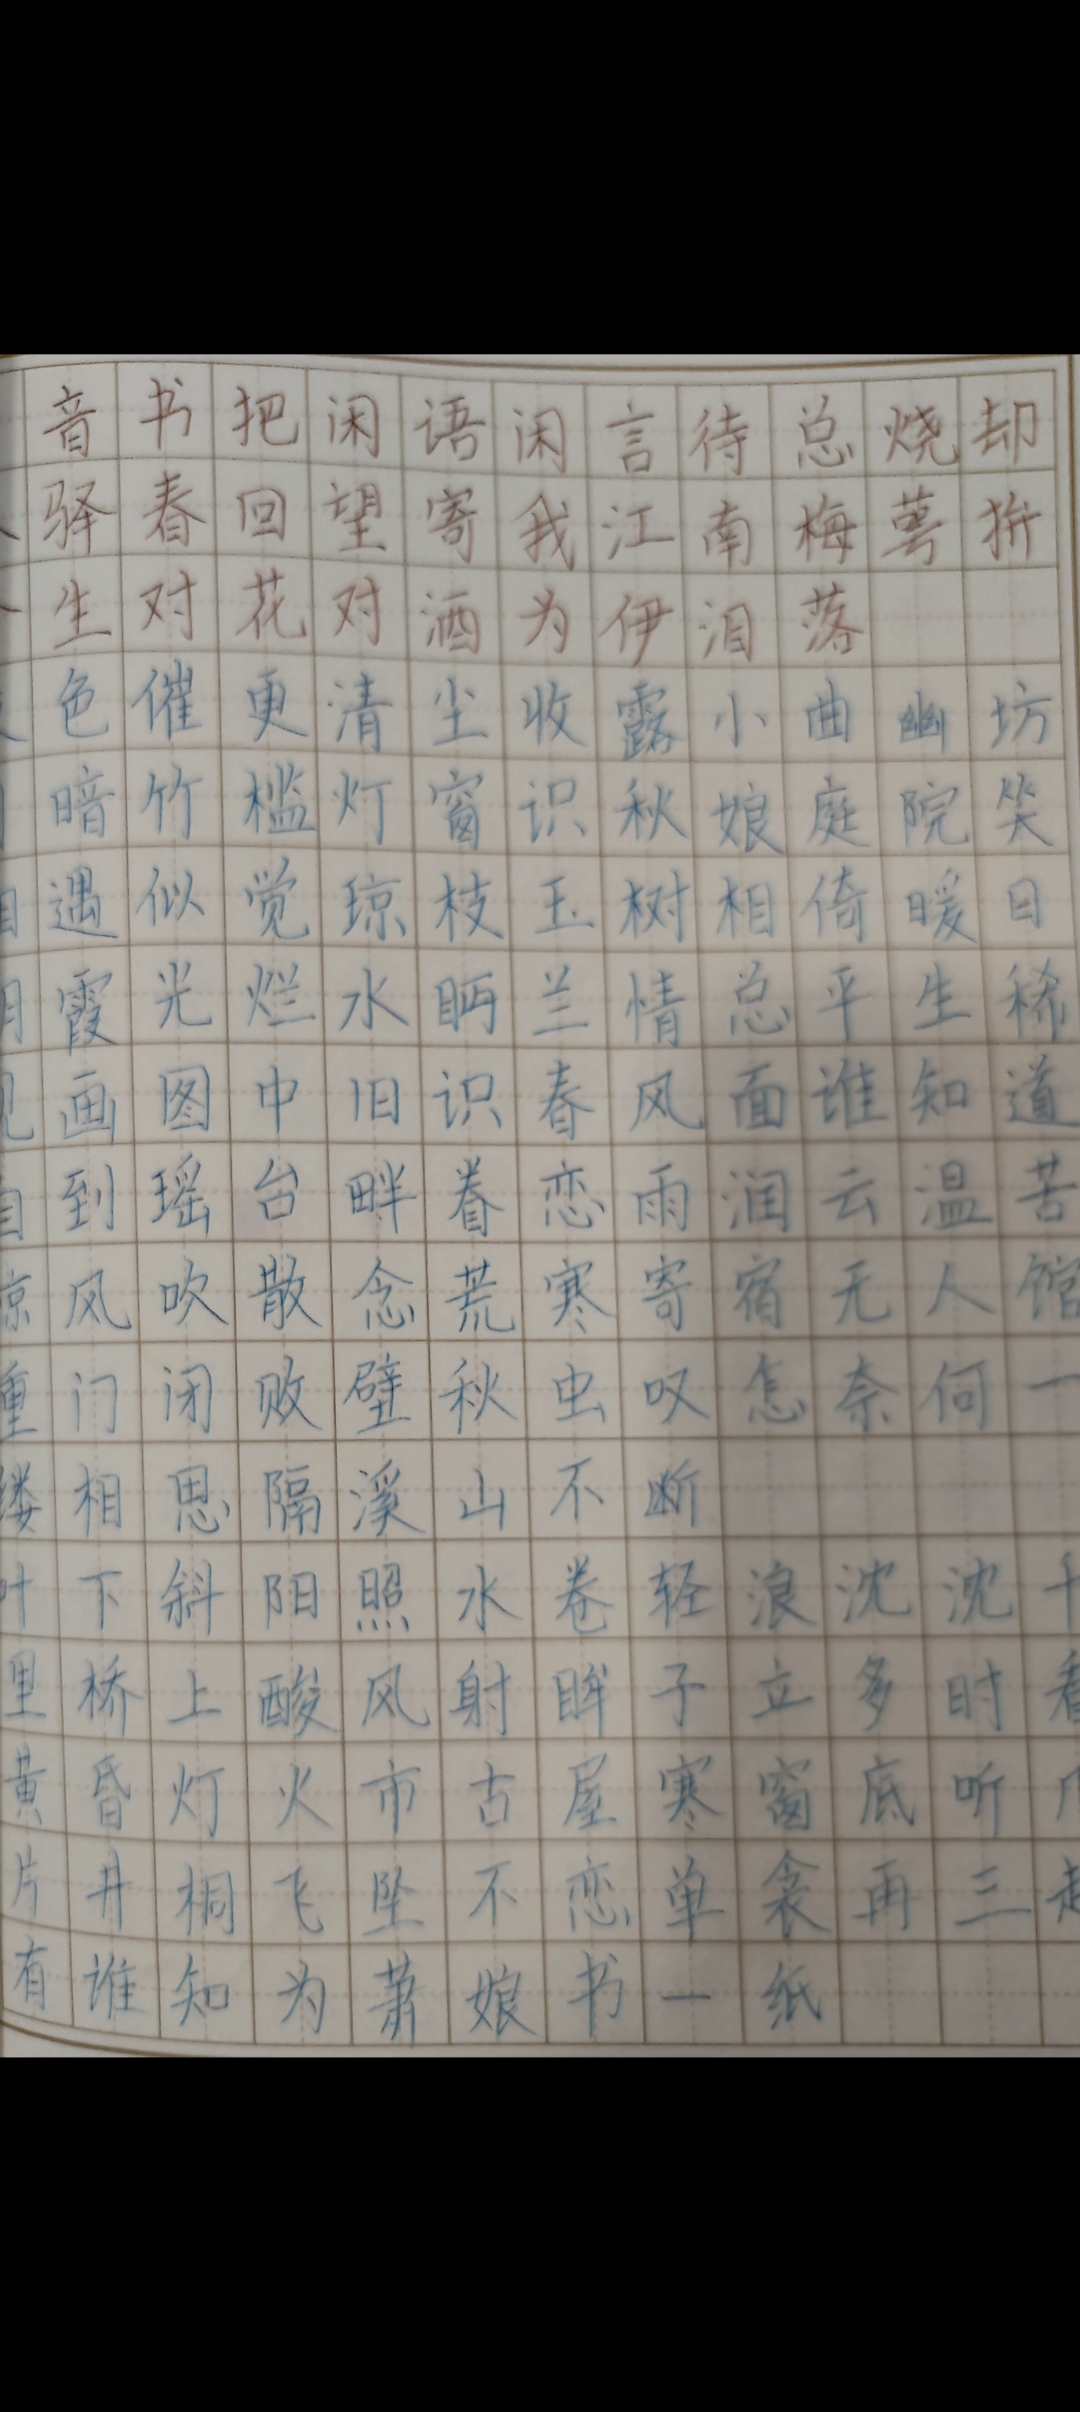 音书把闲语闲言待总烧却
驿春回望寄我江南梅萼拚
生对花对酒为伊泪落
色催更清尘收露小曲幽坊
暗竹槛灯窗识秋娘庭院笑
相遇似觉琼枝玉树相倚暖日
明霞光烂水眄兰情总平生稀
见画图中旧识春风面谁知道
自到瑶台畔眷恋雨润云温苦
惊风吹散念荒寒寄宿无人馆
重门闭败壁秋虫叹怎奈何一
缕相思隔溪山不断
叶下斜阳照水卷轻浪沈沈千
里桥上酸风射眸子立多时看
黄昏灯火市古屋寒窗底听几
片井桐飞坠不恋单衾再三起
有谁知为萧娘书一纸